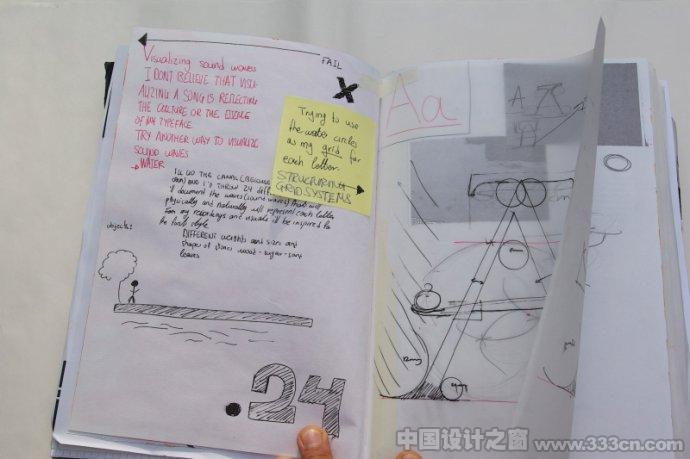 FAIL
X
Visualizing sound waves
I DONT BELIEVE THAT VISU-
ALIZING A SONG IS REFLECTING
THE CULTURE OR THE ESSENCE
OF MY TYPEFACE.
TRY ANOTHER WAY TO VISUALIZE
SOUND WAVES
→ WATER
Trying to use
the water circles
as my grid for
each letter.
STRUCTURING
GRIDSYSTEMS
I'LL GO THE CANAL (BECAUSE
AND I'D THROW 24 DIFF
& document the waves (sound waves) that will
physically and naturally will represent each letter
my recordings and visuals will be inspired for
the font style.
DIFFERENT weights and sizes and
shape of wood - sugar - sand
leaves
objects:
.24
Aa
A
中国设计之窗
www.333cn.com